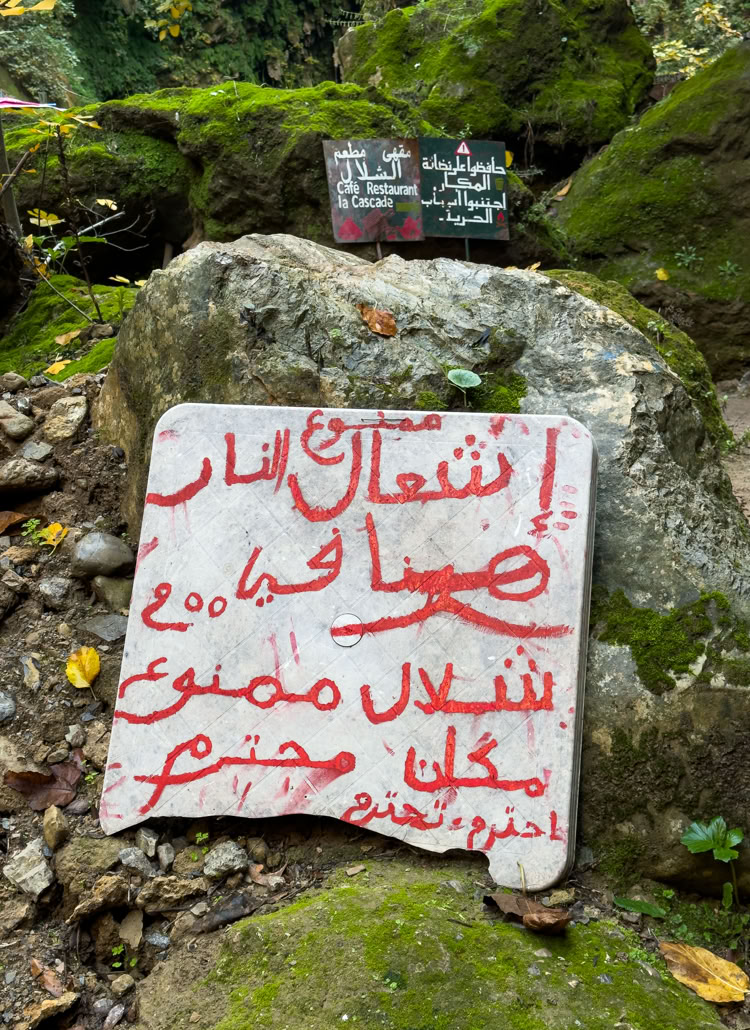 مقهى مطعم
الشلال
Café Restaurant
la Cascade
حافظوا على نضافة
المكان
اجتنبوا
الحرية.
ممنوع
إشعال النار
هنا في
شلال ممنوع
مكان محترم
احترم تحترم